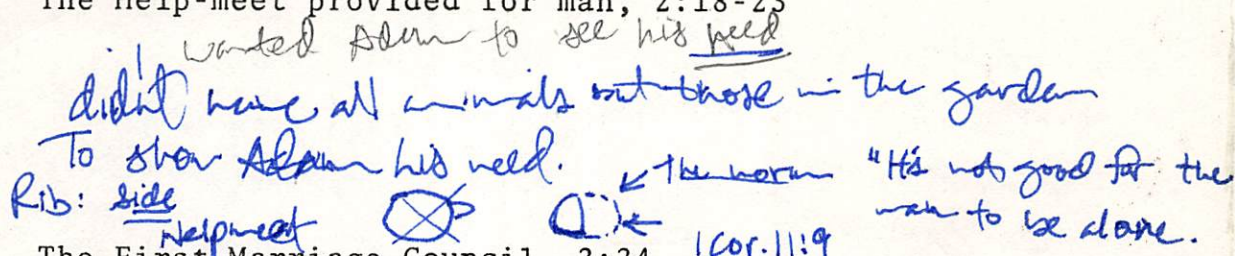 The Help-meet provided for man, 2:18-23
wanted Adam to see his need
didn't name all animals but those in the garden
To show Adam his need.
Rib: side
Helpmeet
The norm
"It's not good for the
man to be alone.
1 Cor. 11:9
The First Marriage Council, 2:24